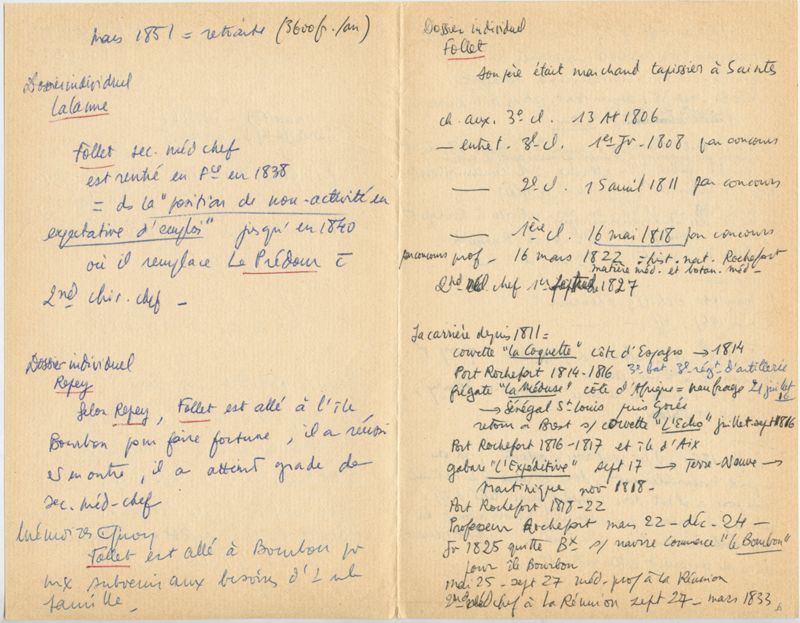 mars 1851 = retraite (3600 fr./an)
Dossier individuel
Lalanne
Follet sec. méd chef
est rentré en Fce en 1838
= ds la "position de non-activité en
expectative d'emploi" jusqu'en 1840
où il remplace Le Prédour c̄
2nd chir. chef –
Dossier individuel
Repey
Selon Repey, Follet est allé à l'île
Bourbon pour faire fortune, il a réussi
et en outre, il a atteint grade de
sec. méd-chef
Mémoires Quoy
Follet est allé à Bourbon pr
mx subvenir aux besoins d'1
famille –
Dossier individuel
Follet
son père était marchand tapissier à Saintes
ch. aux. 3e cl. 13 At 1806
— entret. 3e cl. 1er Jr – 1808 par concours
— 2e cl. 15 avril 1811 par concours
— 1ère cl. 16 mai 1818 par concours
par concours prof – 16 mars 1822 = hist. nat. Rochefort
matière méd. et botan. méd –
2nd méd chef 1er 1827
Sa carrière depuis 1811 =
corvette "La Coquette" côte d'Espagne → 1814
Port Rochefort 1814-1816 3e bat. 3e régt. d'artillerie
frégate "La Méduse" côte d'Afrique = naufrage 2 juillet
16
→ Sénégal St Louis puis Gorée
retour à Brest s/ corvette "L'Echo" juillet-sept 1816
Port Rochefort 1816-1817 et île d'Aix
gabare "L'Expéditive" sept 17 → Terre-Neuve →
Martinique nov 1818 –
Port Rochefort 1818-22
Professeur Rochefort mars 22 – déc – 24 –
Jr 1825 quitte Bx s/ navire commerce "le Bourbon"
pour île Bourbon
mai 25 – sept 27 méd. prof à la Réunion
2nd méd chef à la Réunion sept 27 – mars 1833